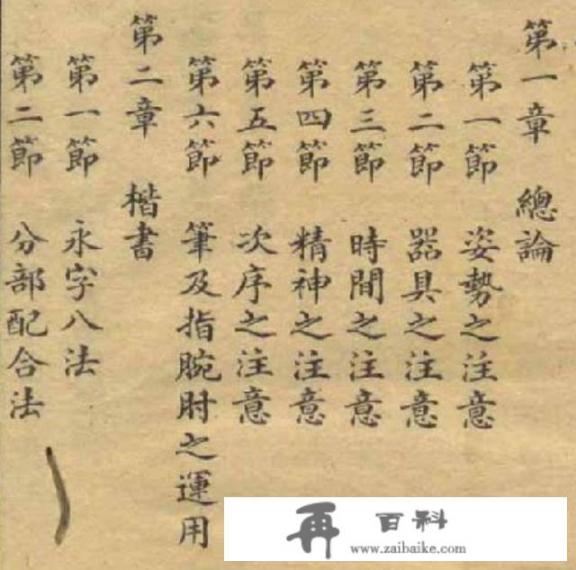 第一章 總論
第一節 姿勢之注意
第二節 器具之注意
第三節 時間之注意
第四節 精神之注意
第五節 次序之注意
第六節 筆及指腕肘之運用
第二章 楷書
第一節 永字八法
第二節 分部配合法
再 百科
www.zaibaike.com